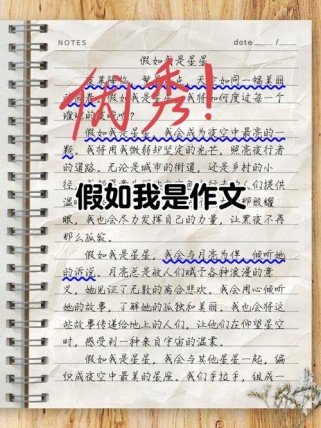 NOTES
date
假如我是星星
夜幕降临，繁星点点，天空如同一幅美丽
假如我是星星，我将如何度过每一个
假如我是星星，我会成为夜空中最亮的一
颗，我将用我微弱却坚定的光芒，照亮夜行者
的道路。无论是城市的街道，还是乡村的小
假如我是作文
眼，我也会尽力发挥自己的力量，让黑夜不再
那么孤寂。
假如我是星星，我会与月亮为伴，倾听她
的诉说。月亮总是被人们赋予各种浪漫的意
义，她见证了无数的离合悲欢。我会用心倾听
她的故事，了解她的孤独和美丽。我也会将这
些故事传递给地上的人们，让他们在仰望星空
时，感受到一种来自宇宙的温柔。
假如我是星星，我会与其他星星一起，编
织成夜空中最美的星座。我们手拉手，组成一
优秀！